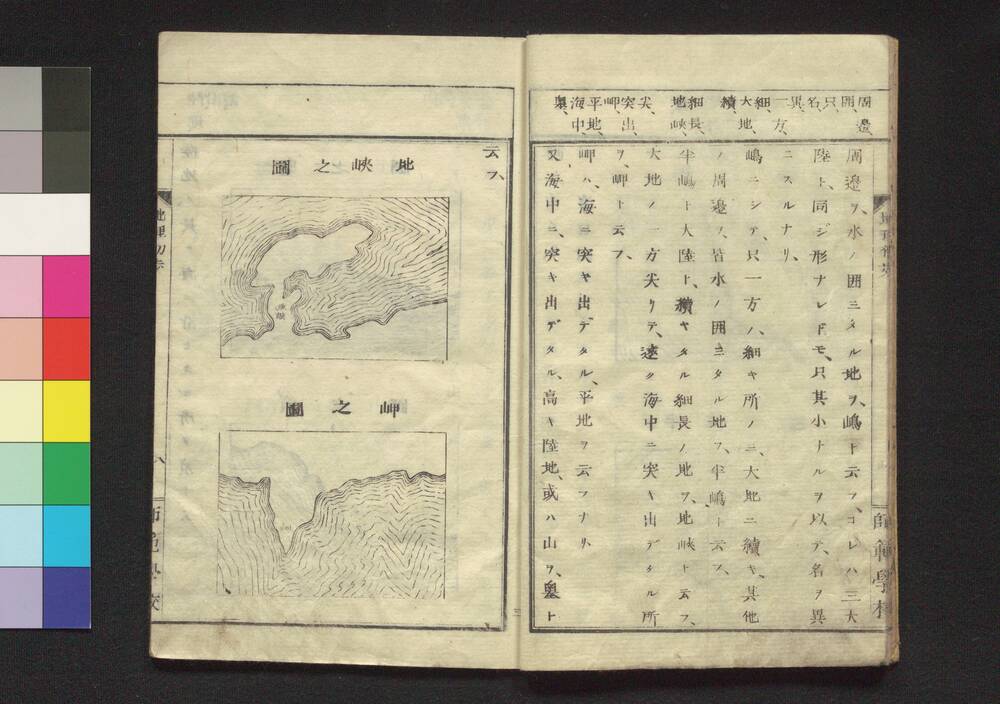 周邊、
囲、只、
名、異、
一方、
細、大地、
續、
細長、地峡、
尖、
突出、
岬、平地、
海中、
奥、
周邊ヲ、水ノ囲ミタル地ヲ、嶋ト云フ、コレハ三大
陸ト、同ジ形ナレドモ、只其小ナルヲ以テ、名ヲ異
ニスルナリ、
嶋ニシテ、只一方ハ、細キ所ノミ、大地ニ續キ、其他
ノ周邊ヲ、皆水ノ囲ミタル地ヲ、半嶋ト云フ、
半嶋ト大陸ト、續キタル細長ノ地ヲ、地峡ト云フ、
大地ノ一方尖リテ、遠ク海中ニ突キ出デタル所
ヲ、岬ト云フ、
岬ハ、海ニ突キ出デタル、平地ヲ云フナリ、
又海中ニ、突キ出デタル、高キ陸地、或ハ山ヲ、奥ト
師範學校
云フ、
地峽之圖
地峽
岬之圖
地理初歩
八
師範學校